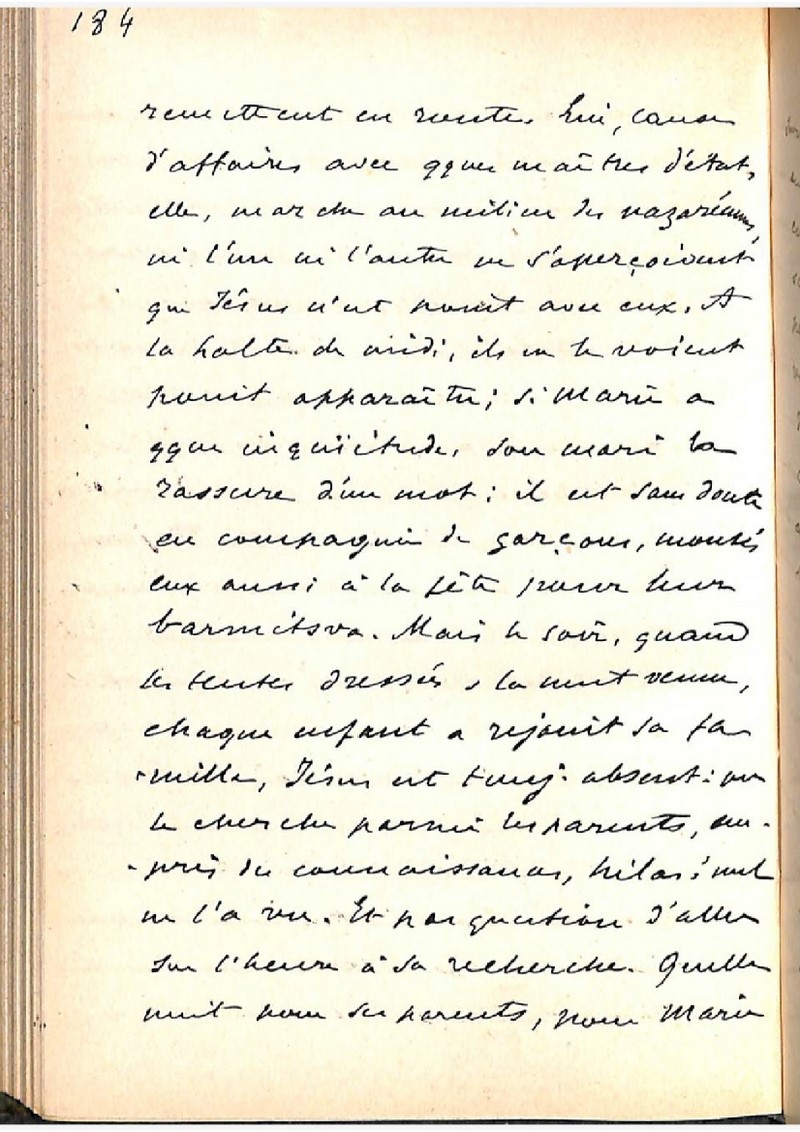 184
remettent en route. Lui, cause
d'affaires avec qques maîtres d'état,
elle, marche au milieu des nazaréennes,
ni l'un ni l'autre ne s'aperçoivent
que Jésus n'est point avec eux. A
la halte de midi, ils ne le voient
point apparaître ; si Marie a
qque inquiétude, son mari la
rassure d'un mot : il est sans doute
en compagnie de garçons, montés
eux aussi à la fête pour leur
barmitsva. Mais le soir, quand
les tentes dressées & la nuit venue,
chaque enfant a rejoint sa fa-
-mille, Jésus est touj. absent : on
le cherche parmi les parents, au-
-près des connaissances, hélas ! nul
ne l'a vu. Et pas question d'aller
sur l'heure à sa recherche. Quelle
nuit pour ses parents, pour Marie